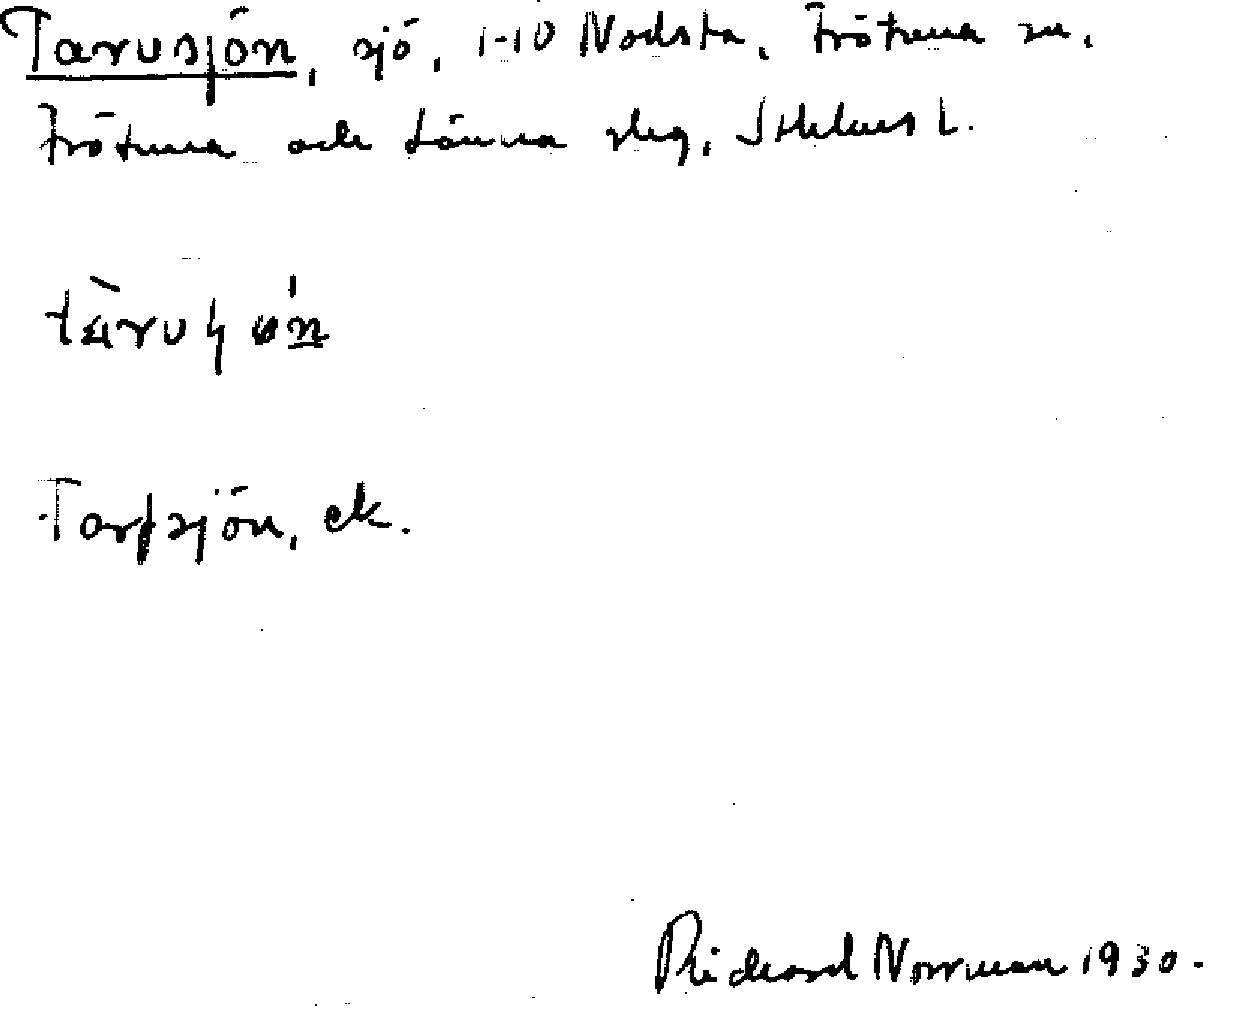 Tarusjön, sjö, 1-10 Nodsta, Frötuna sn,
Frötuna och Länna slg, Sthlms l.
Tarpsjön, ek.
Richard Norrman 1930.